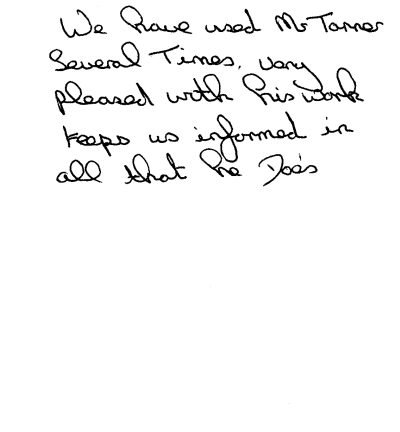 We have used Mr Tanner
Several Times, very
pleased with his work
keeps us informed in
all that he Does